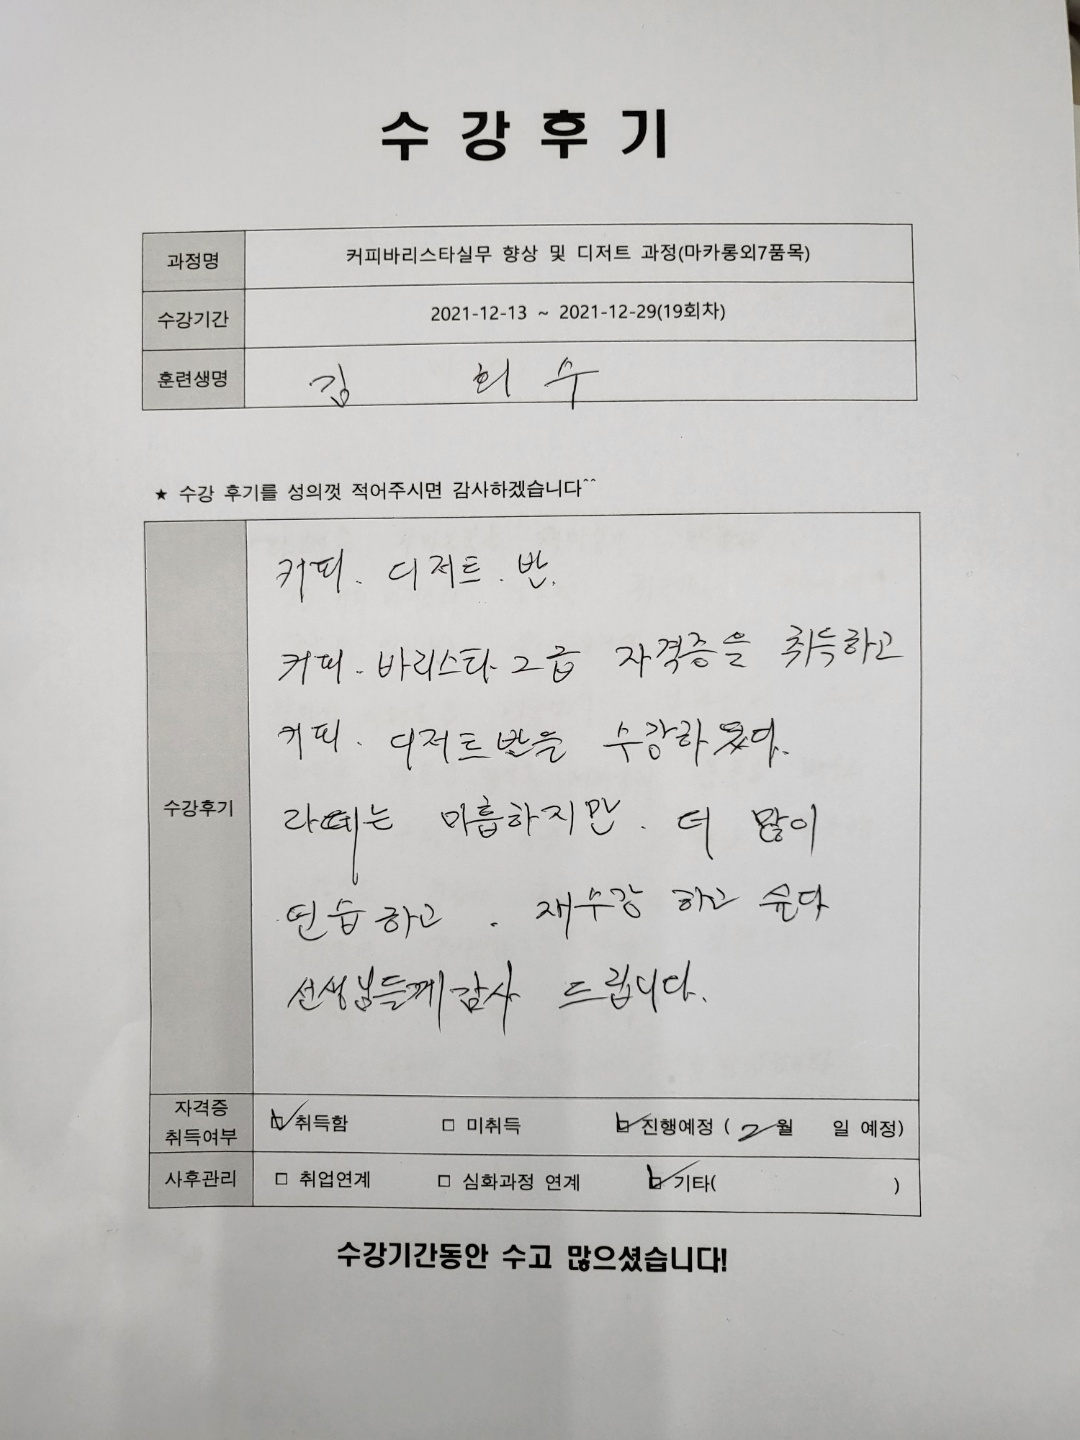 수강후기
과정명 커피바리스타실무 향상 및 디저트 과정(마카롱외7품목)
수강기간 2021-12-13 ~ 2021-12-29(19회차)
훈련생명 김 희 수
★ 수강 후기를 성의껏 적어주시면 감사하겠습니다^^
커피. 디저트. 반.
커피. 바리스타 2급 자격증을 취득하고
수강후기
커피. 디저트반을 수강하
라떼는 미흡하지만. 더 많이
연습하고. 재수강 하고 싶다
선생님들께 감사 드립니다.
자격증 취득여부 □ 취득함 □ 미취득 □ 진행예정 ( 2월 일 예정)
사후관리 □ 취업연계 □ 심화과정 연계 □ 기타( )
수강기간동안 수고 많으셨습니다!